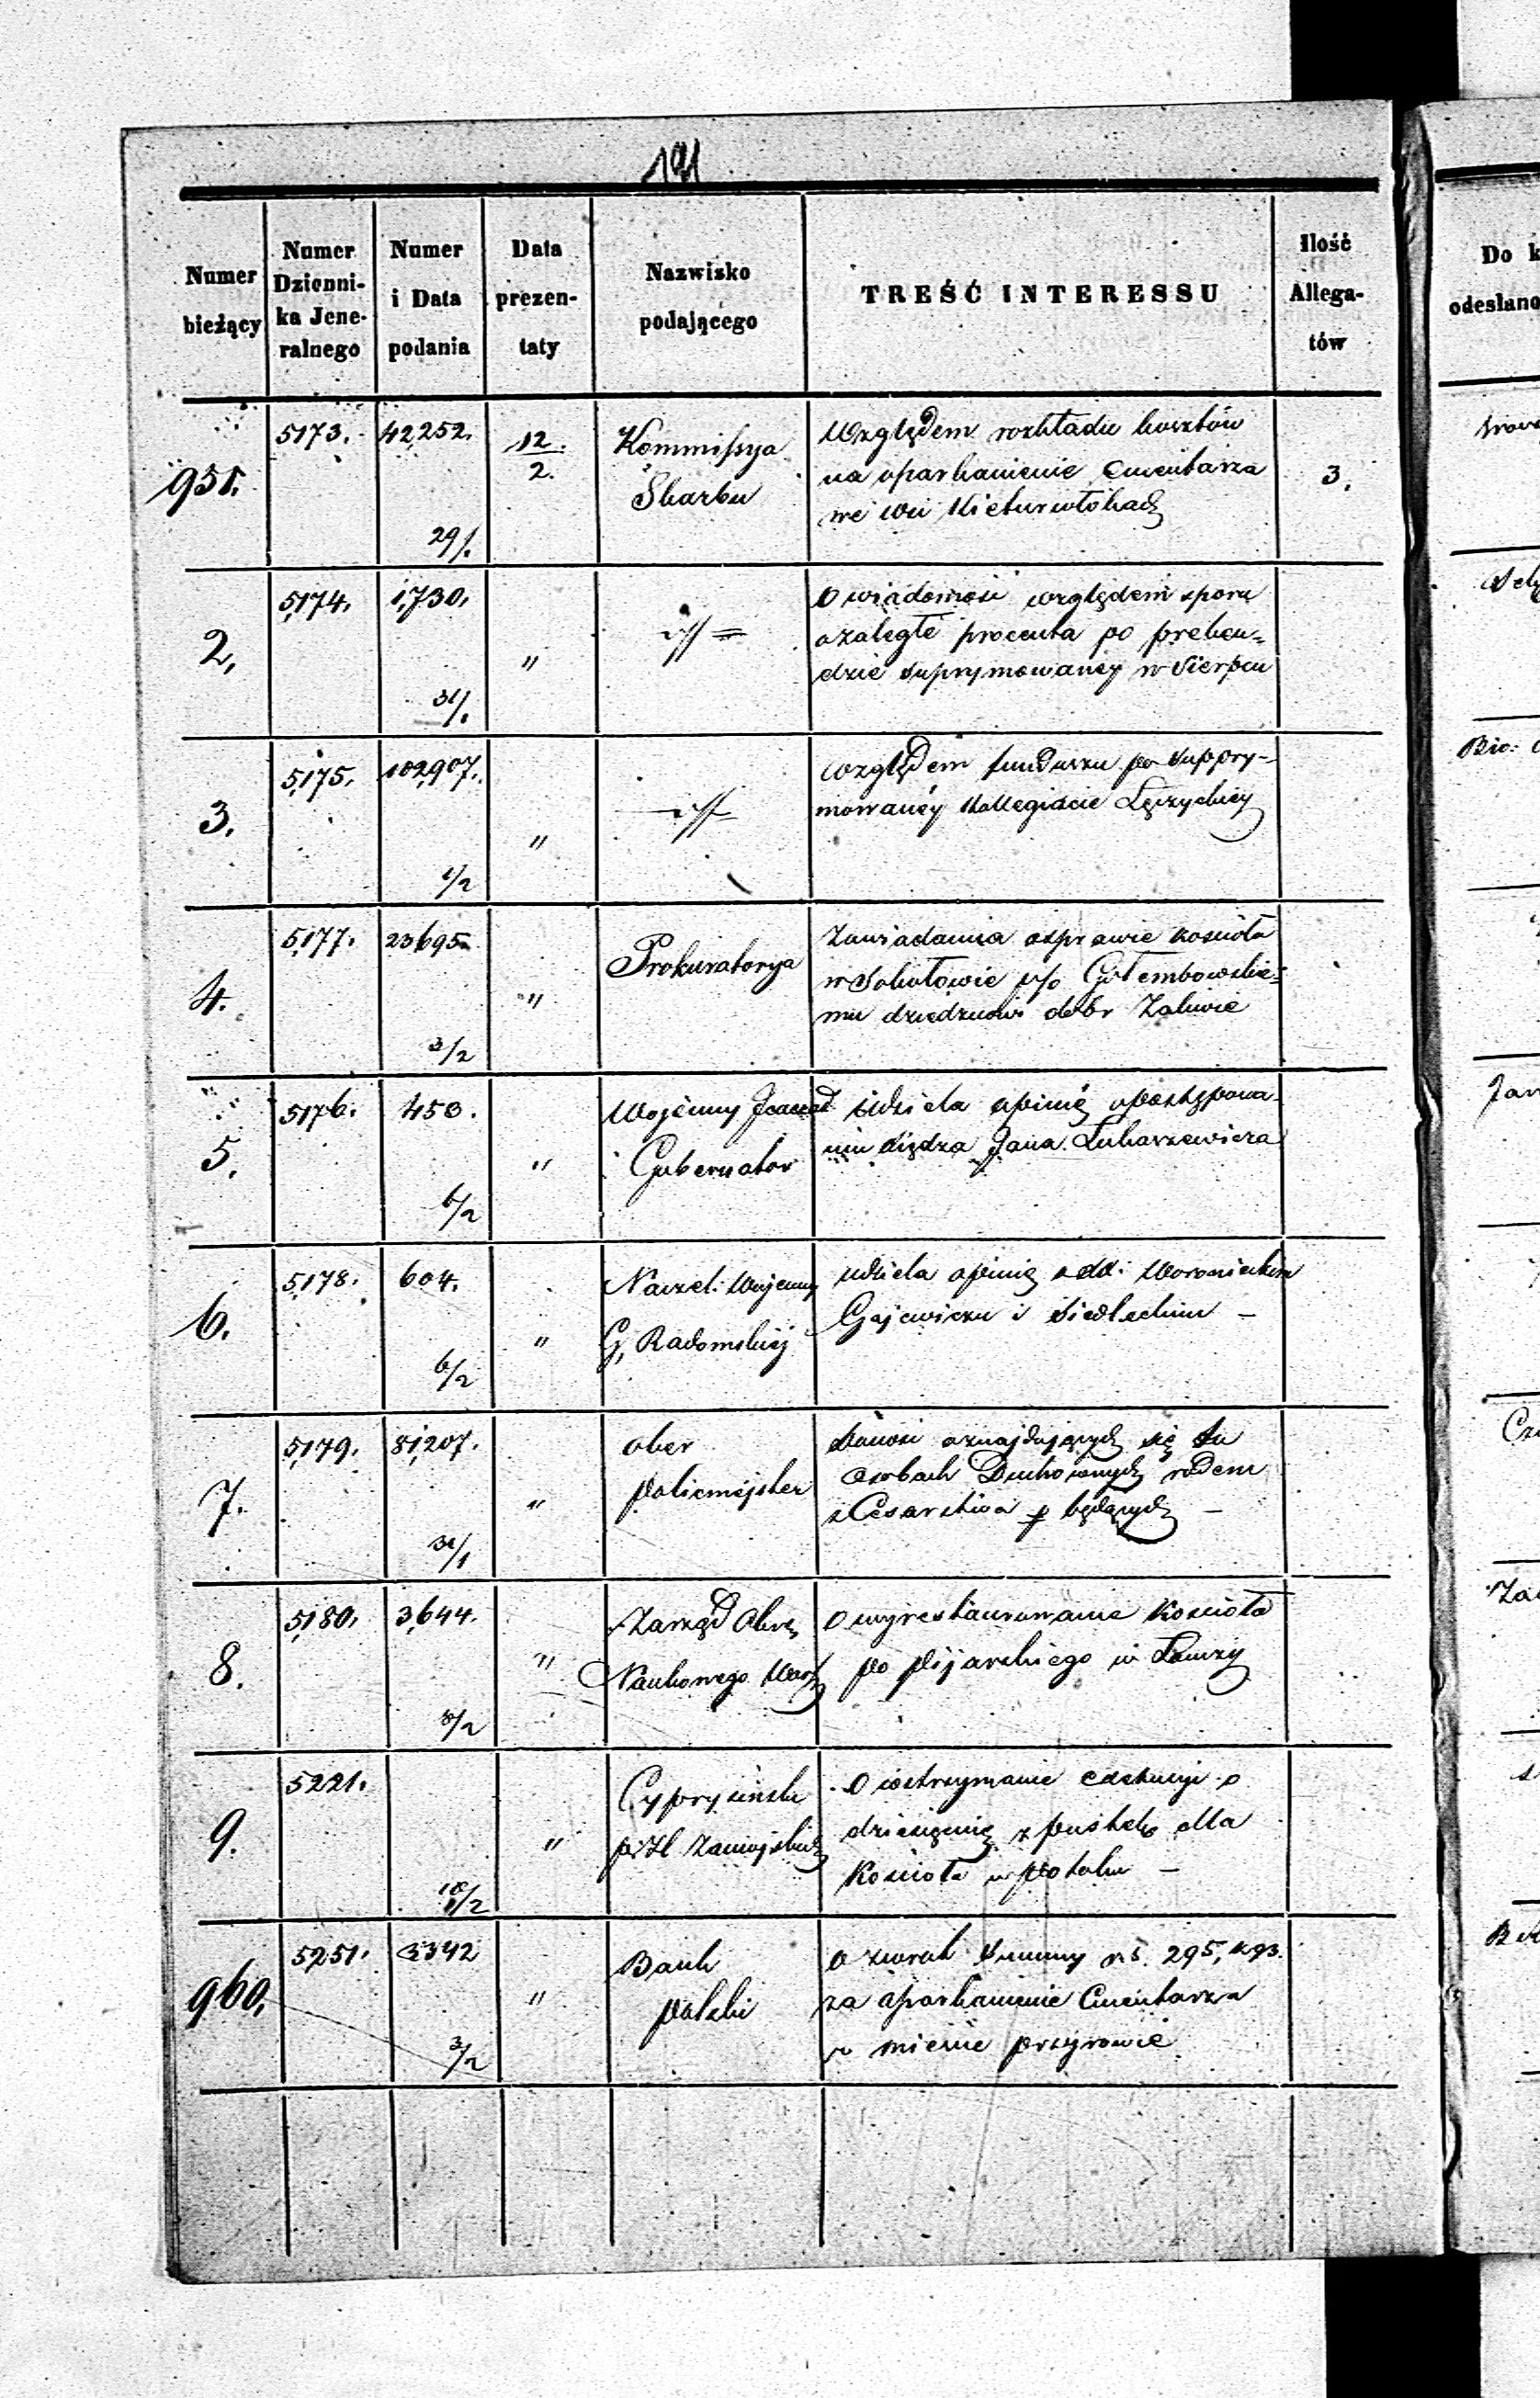 191
Numer bieżący
Numer Dzienni- ka Jene- ralnego
Numer i Data podania
Data prezen- taty
Nazwisko podającego
TREŚĆ INTERESSU
Ilość Allega- tów
Do k
odesłano
951.
5173.
42,252.
29/1.
12/2.
Kommissya
Skarbu
Względem rozkładu kosztów
na oparkanienie Cmentarza
we wsi
3.
2,
5,174.
1,730.
31/1.
"
O wiadomość względem sporu
o zaległe procenta po preben-
dzie suprymowanéy w Sierpcu
3.
5,175.
102,907.
1/2
"
względem funduszu po suppry-
mowanéy Kollegiacie Łęczyckiey
4.
5,177.
23,695
3/2
"
Prokuratorya
Zawiadamia o sprawie Kościoła
w Sokołowie p/o Gołembowskie-
mu dziedzicowi dóbr
5.
5176.
450.
6/2
"
Wojenny
Gubernator
Udziela opinię o postępowa-
niu Księdza Jana
6.
5,178.
604.
6/2
"
Naczel: Wojenny
G, Radomskiéj
udziela opinię o
Gajewiczu i Siedleckim –
7.
5,179.
81,207.
31/1
"
Ober
Policmejster
o znajdujących się tu
Osobach Duchownych rodem
z Cesarstwa będących –
8.
5,180.
3,644.
8/2
"
Zarząd Okrę
Naukowego Warsz
O wyrestaurowanie Kościoła
po Pijarskiego w Łomży
9.
5221.
10/2
"
O wstrzymanie exekucyi o
dziesięcinę z pustek dla
Kościoła w
960.
5,251.
5342
3/2
"
Bank
Polski
O zwrot Summy rs. 295, k 93.
za oparkanienie Cmentarza
w mieście Przyrowie